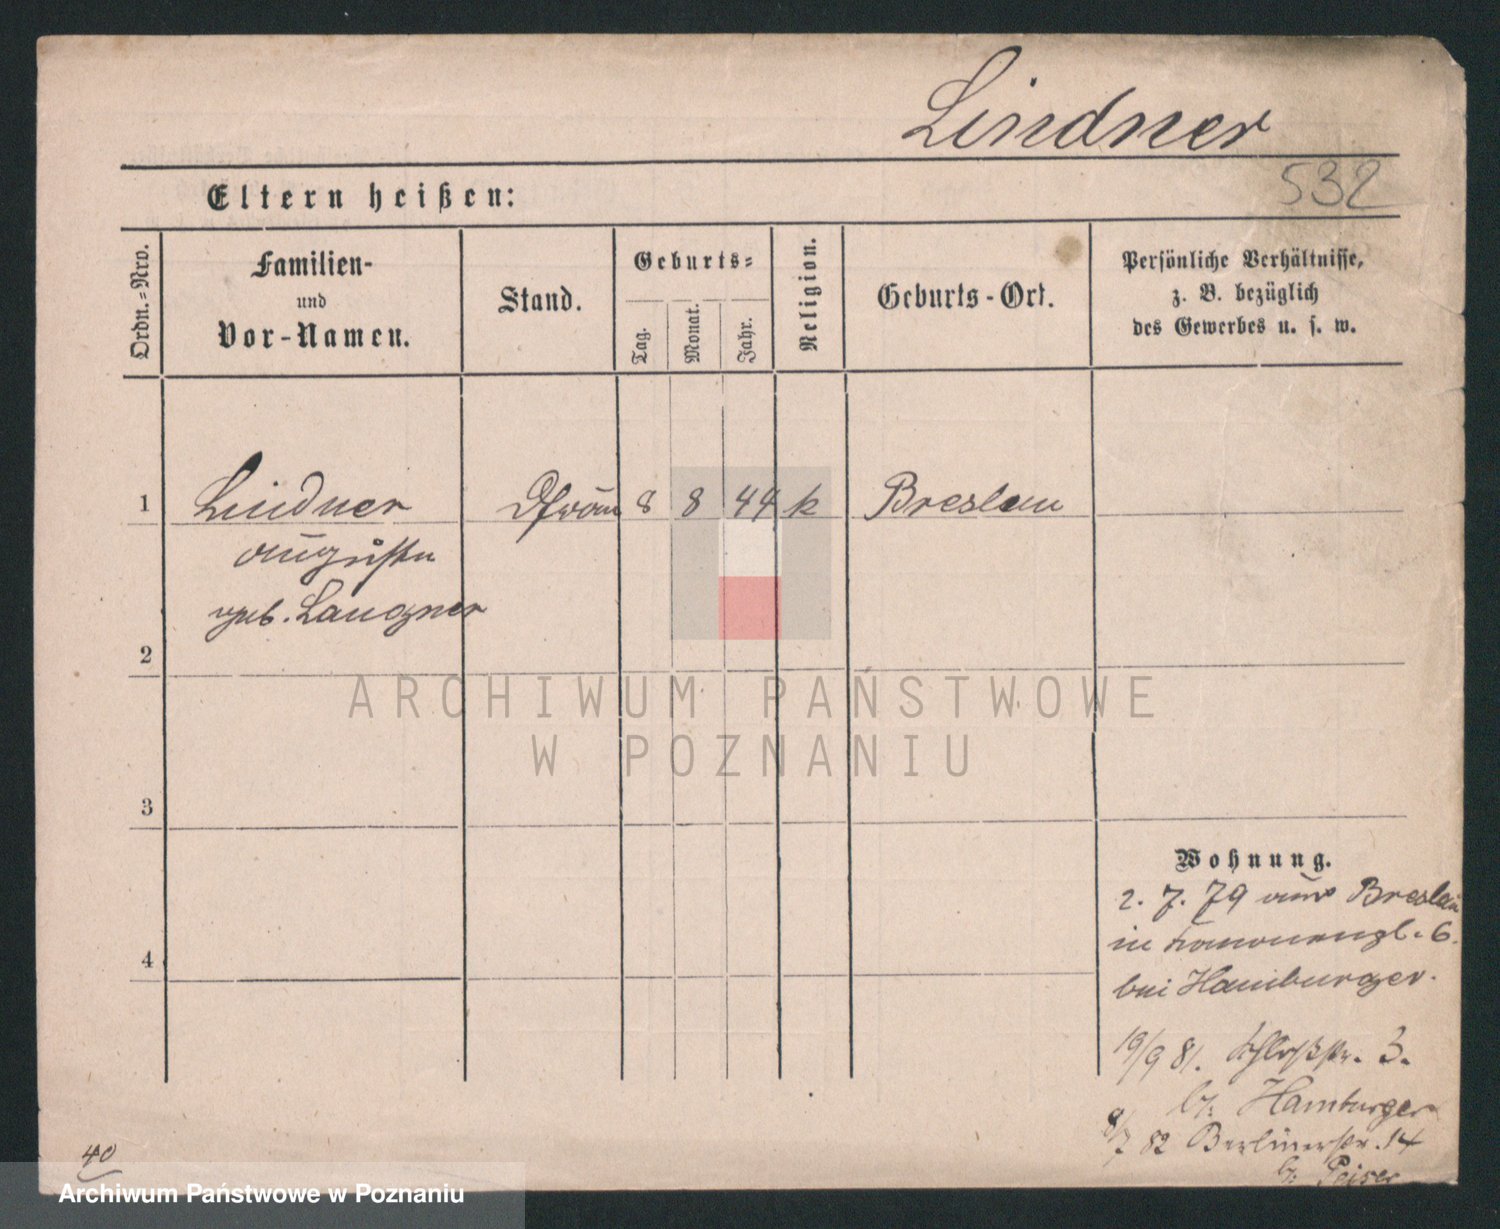 Lindner
532
Eltern heißen:
Ordn.=Nro.
Familien-
und
Vor-Namen.
Stand.
Geburts=
Tag.
Monat.
Jahr.
Religion.
Geburts-Ort.
Persönliche Verhältnisse,
z. B. bezüglich
des Gewerbes u. s. w.
1 Lindner 8 8 44 k Breslau
Auguste
geb. Langner
2
3
Wohnung.
2. 7. 79 aus Breslau
in 6.
bei Hamburger.
4
19/9 81. Schloßstr. 3.
b/: Hamburger
8/7 82 Berlinerstr. 14
b/: Peiser
40
ARCHIWUM PAŃSTWOWE
W POZNANIU
Archiwum Państwowe w Poznaniu